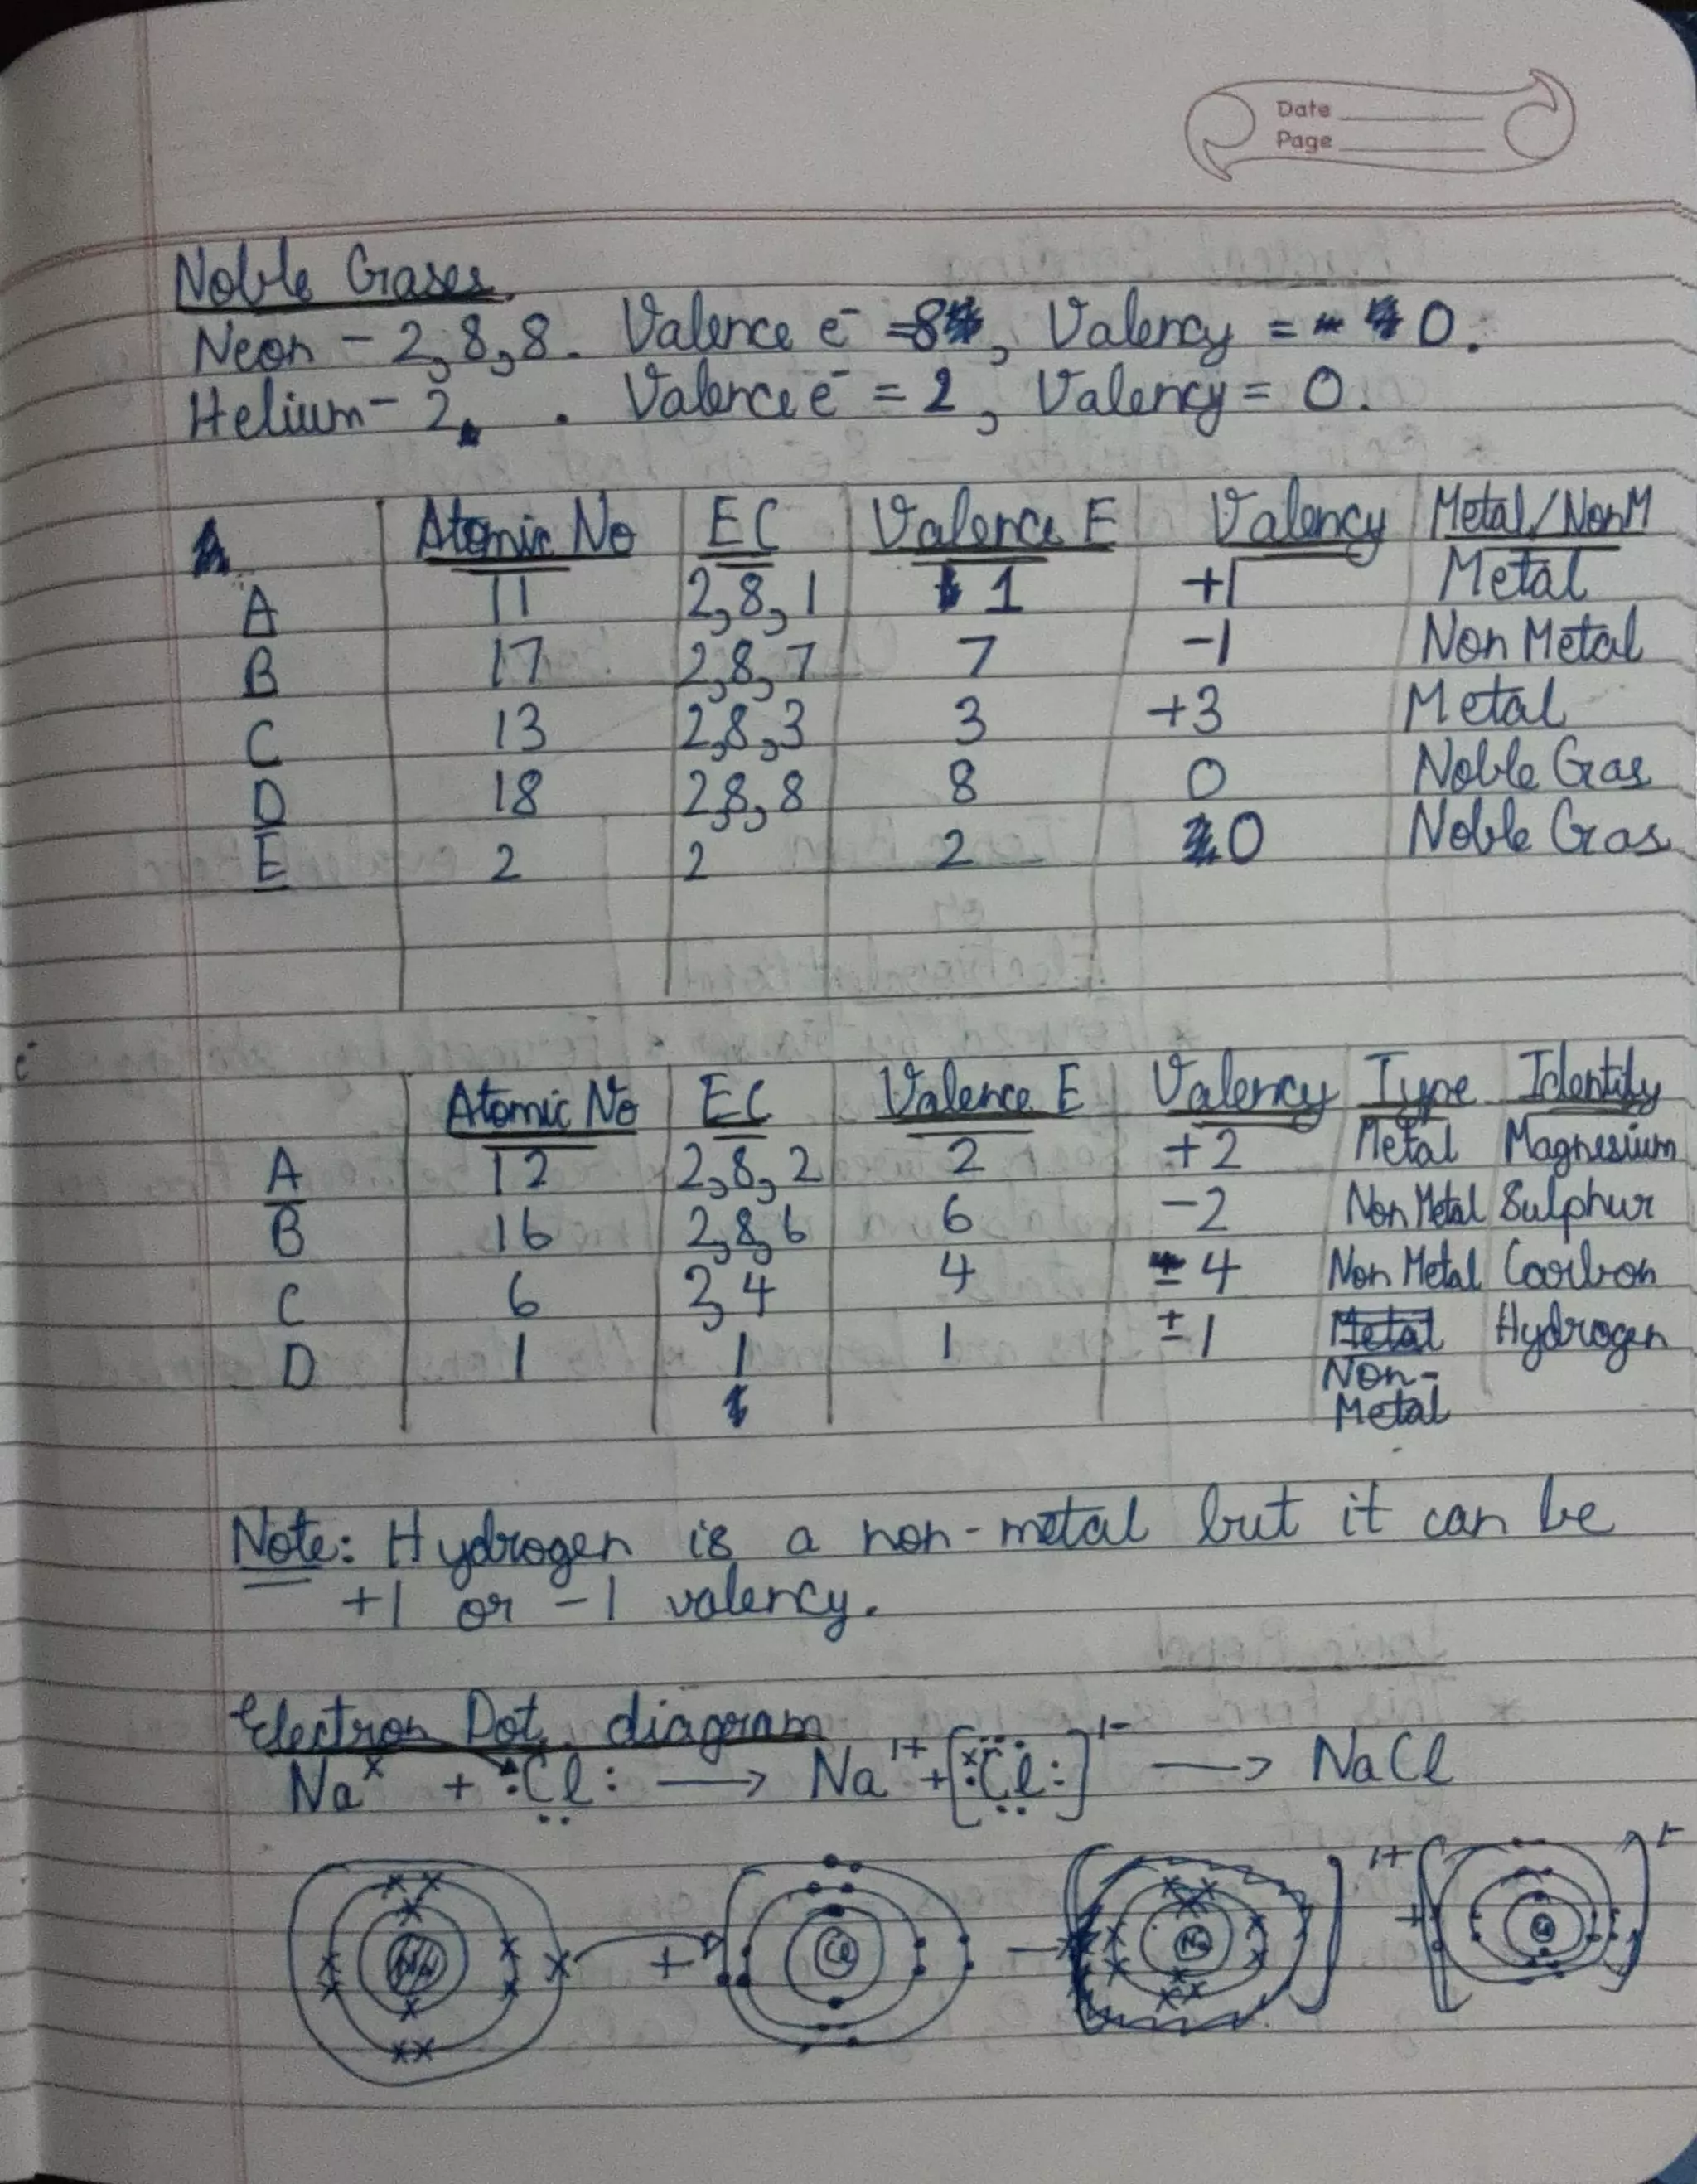 Date
Page
Noble Gases
Neon - 2,8,8. Valence e⁻ = 8, Valency = 0.
Helium - 2. Valence e⁻ = 2, Valency = 0.
Atomic No EC Valence E Valency Metal/NonM
A 11 2,8,1 1 +1 Metal
B 17 2,8,7 7 -1 Non Metal
C 13 2,8,3 3 +3 Metal
D 18 2,8,8 8 0 Noble Gas
E 2 2 2 0 Noble Gas
e⁻
Atomic No EC Valence E Valency Type Identity
A 12 2,8,2 2 +2 Metal Magnesium
B 16 2,8,6 6 -2 Non Metal Sulphur
C 6 2,4 4 ±4 Non Metal Carbon
D 1 1 1 ±1 Metal Hydrogen
Non-
Metal
Note: Hydrogen is a non-metal but it can be
+1 or -1 valency.
Electron Dot diagram
Naˣ + :Cl: → Na¹⁺ + [:Cl:]¹⁻ → NaCl
+ Cl → Na 1+ + Cl 1-